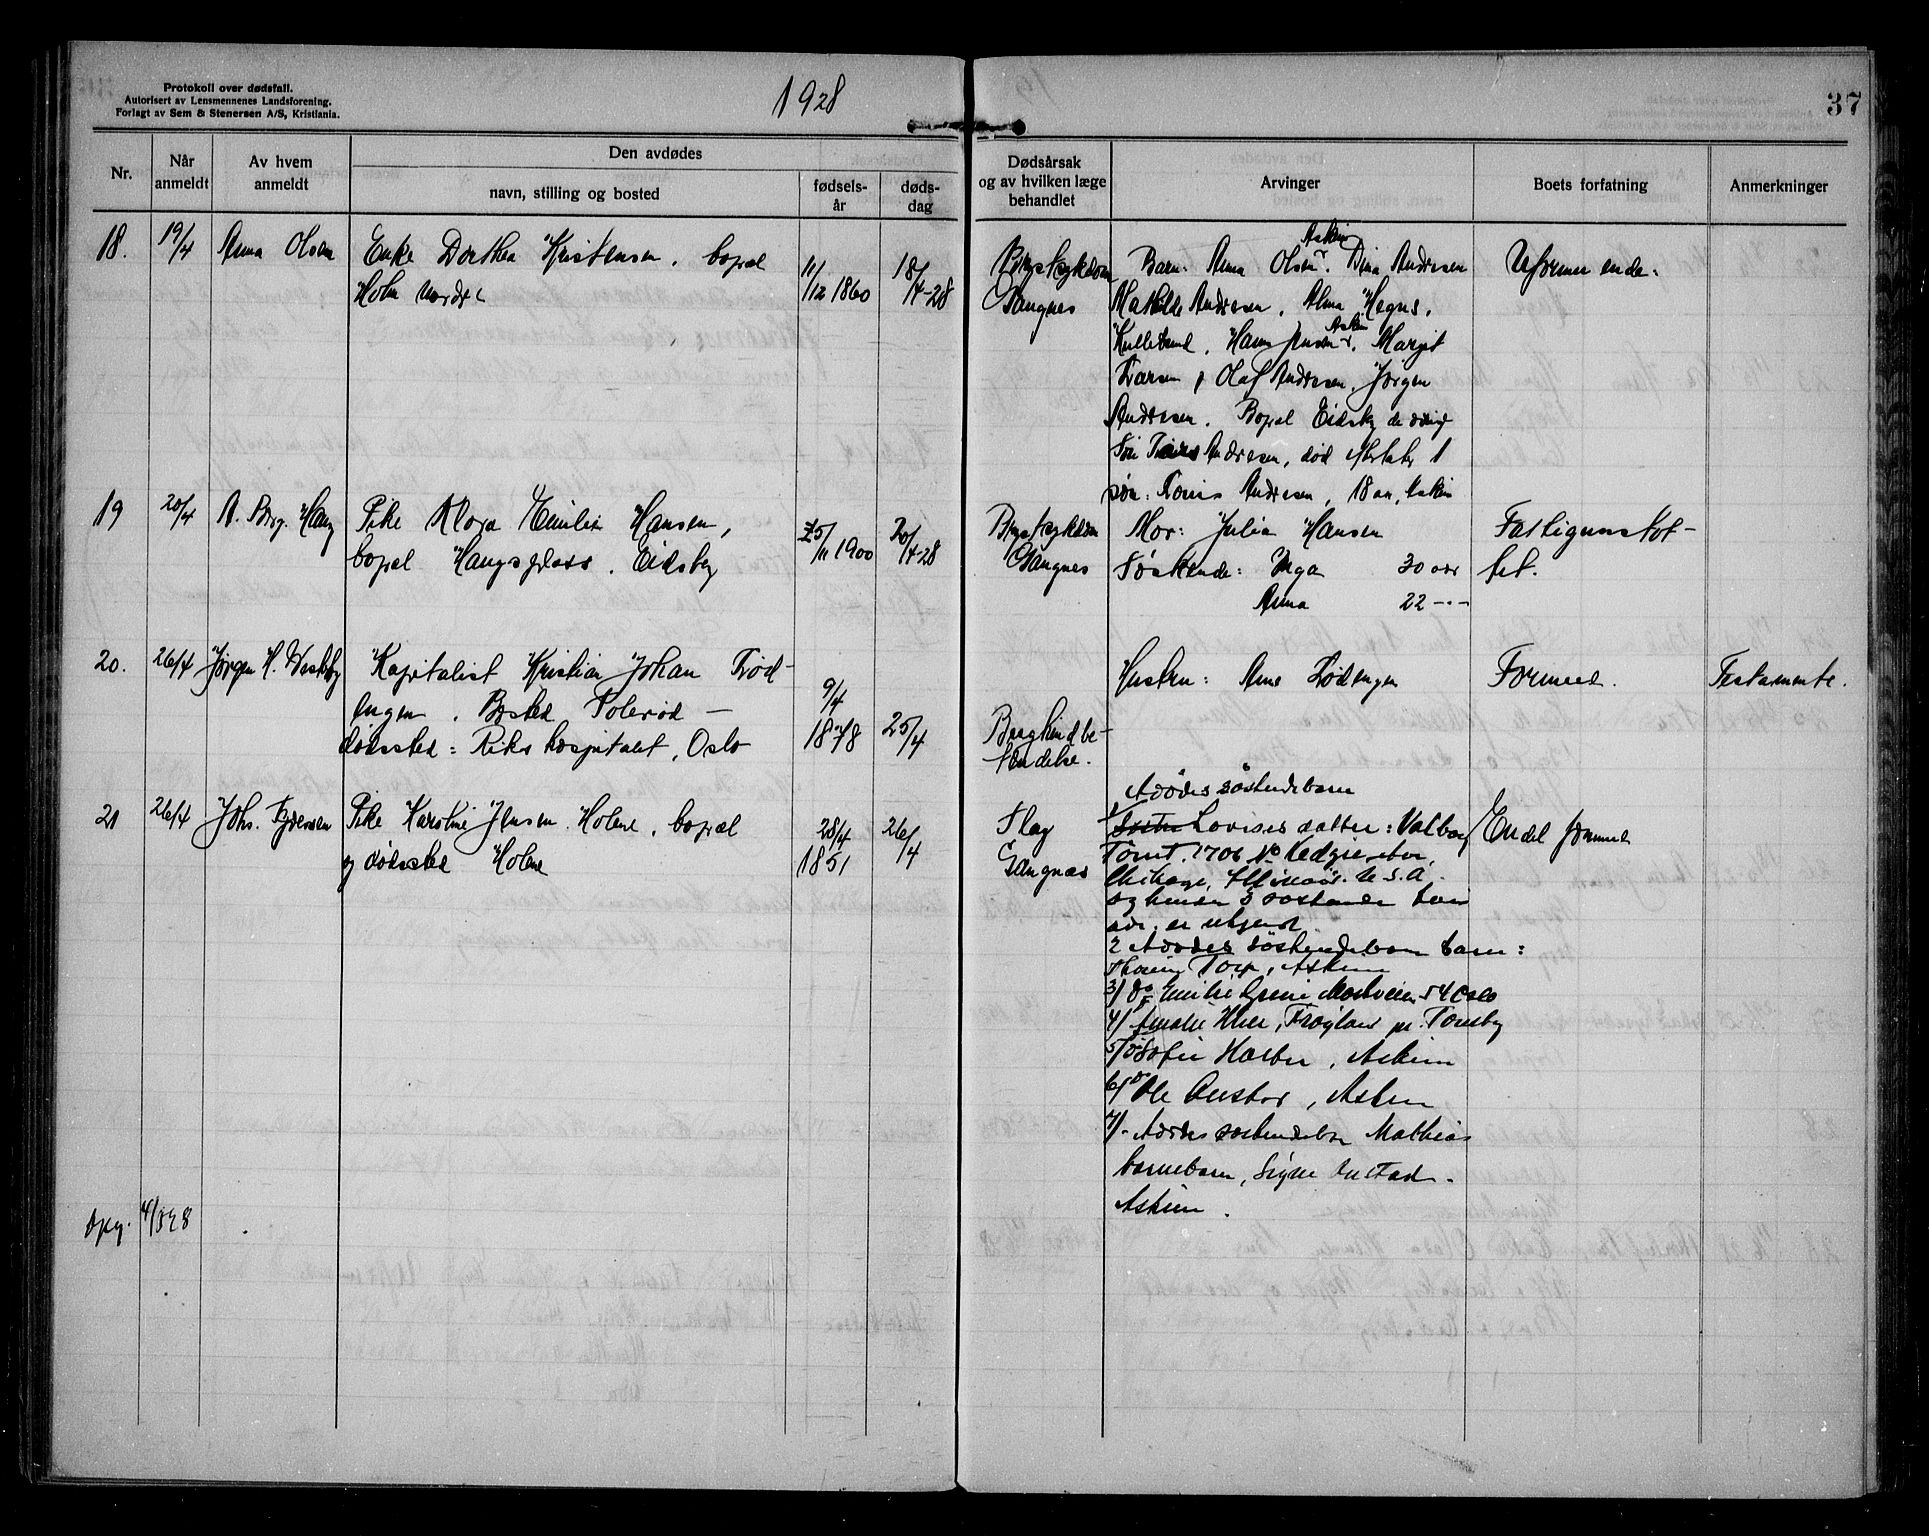 Protokoll over dødsfall.
Autorisert av Lensmennenes Landsforening.
Forlagt av Sem & Stenersen A/S, Kristiania.
1928
37
Nr.
Når anmeldt
Av hvem anmeldt
Den avdødes
navn, stilling og bosted
fødsels-år
døds-dag
Dødsårsak og av hvilken læge behandlet
Arvinger
Boets forfatning
Anmerkninger
18. 19/4 Anna Olsen
Enke Dorthea Kristensen. bopæl
Holm nordre
11/12 1860
18/4-28
Brystsykdom
Gangnes
Askim
Barn: Anna Olsen. Dina Andresen
Mathilde Andresen. Alma
Askim
Hans Jensen. Margit
Larsen, Olaf Andresen. Jørgen
Andresen. Bopæl Eidsbg de øvrige
Andresen, død efterlater 1
søn: Andresen, 18 aar, Askim
Uformuende.
19 20/4
Pike Klara Emilie Hansen,
bopæl Haugsplass. Eidsberg
25/11 1900
20/4-28
Brystsykdom
Gangnes
Mor: Julia Hansen
Søskende: Inga 30 aar
Anna 22 -"-
Fattigunnstøt-
tet.
20. 26/4 Jørgen H. Westby
Kapitalist Kristian Johan Lød-
engen. Bosted Tolerød -
dødssted: Rikshospitalet, Oslo
9/4
1878
25/4
Bughindebe-
tændelse.
Hustru: Anne Lødengen
Formue.
Testamente.
21 26/4 Johs.
Pike Karoline Jensen Holene. bopæl
og dødssted Holene
28/4
1851
26/4
Slag
Gangnes
Avdødes søskendebarn
1/ Lovises datter: Valborg
1706 No Kedzie
Chikago, Illinois. U.S.A.
og hendes 3 søskende hvis
adr. er ukjendt
2 Avdødes søskendebarns barn:
Torp, Askim
3/ do Emilie Mosseveien 54 Oslo
4/ Amalie Frogland pr. Tomter
5/ do Sofie Askim
6/ do Ole Askim
7/- Avdødes søskendebarn Mathias
barnebarn, Signe
Askim.
Endel formue